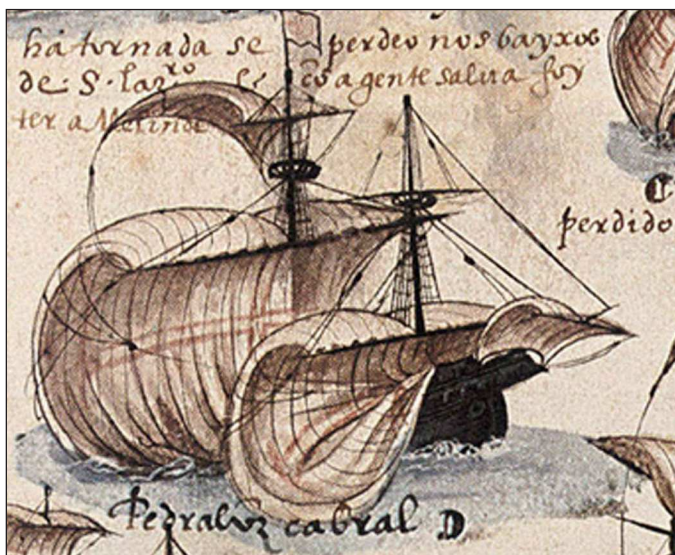 há tornada se perdeo nos bayxos
de: S. laz^ro e a gente salua foy
ter a Melinde
C
perdido
Pedraluz cabral D